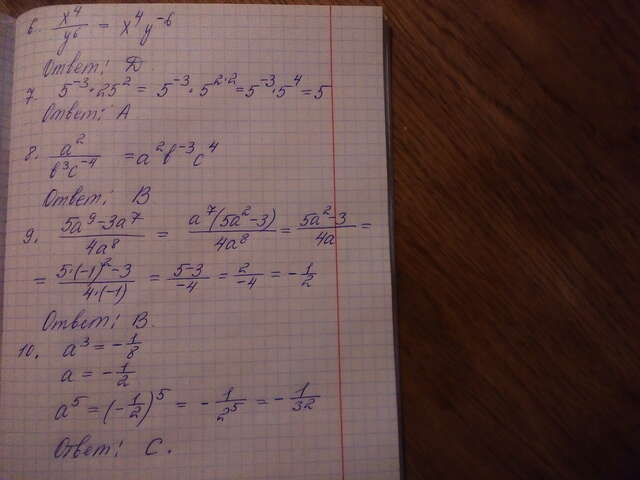 6. x⁴/y⁶ = x⁴y⁻⁶
Ответ: D.
7. 5⁻³·25² = 5⁻³·5²·² = 5⁻³·5⁴ = 5
Ответ: A
8. a²/(b³c⁻⁴) = a²b⁻³c⁴
Ответ: B
9. (5a⁹-3a⁷)/(4a⁸) = a⁷(5a²-3)/(4a⁸) = (5a²-3)/(4a) =
= (5·(-1)²-3)/(4·(-1)) = (5-3)/(-4) = 2/(-4) = -1/2
Ответ: B.
10. a³ = -1/8
a = -1/2
a⁵ = (-1/2)⁵ = -1/2⁵ = -1/32
Ответ: C.